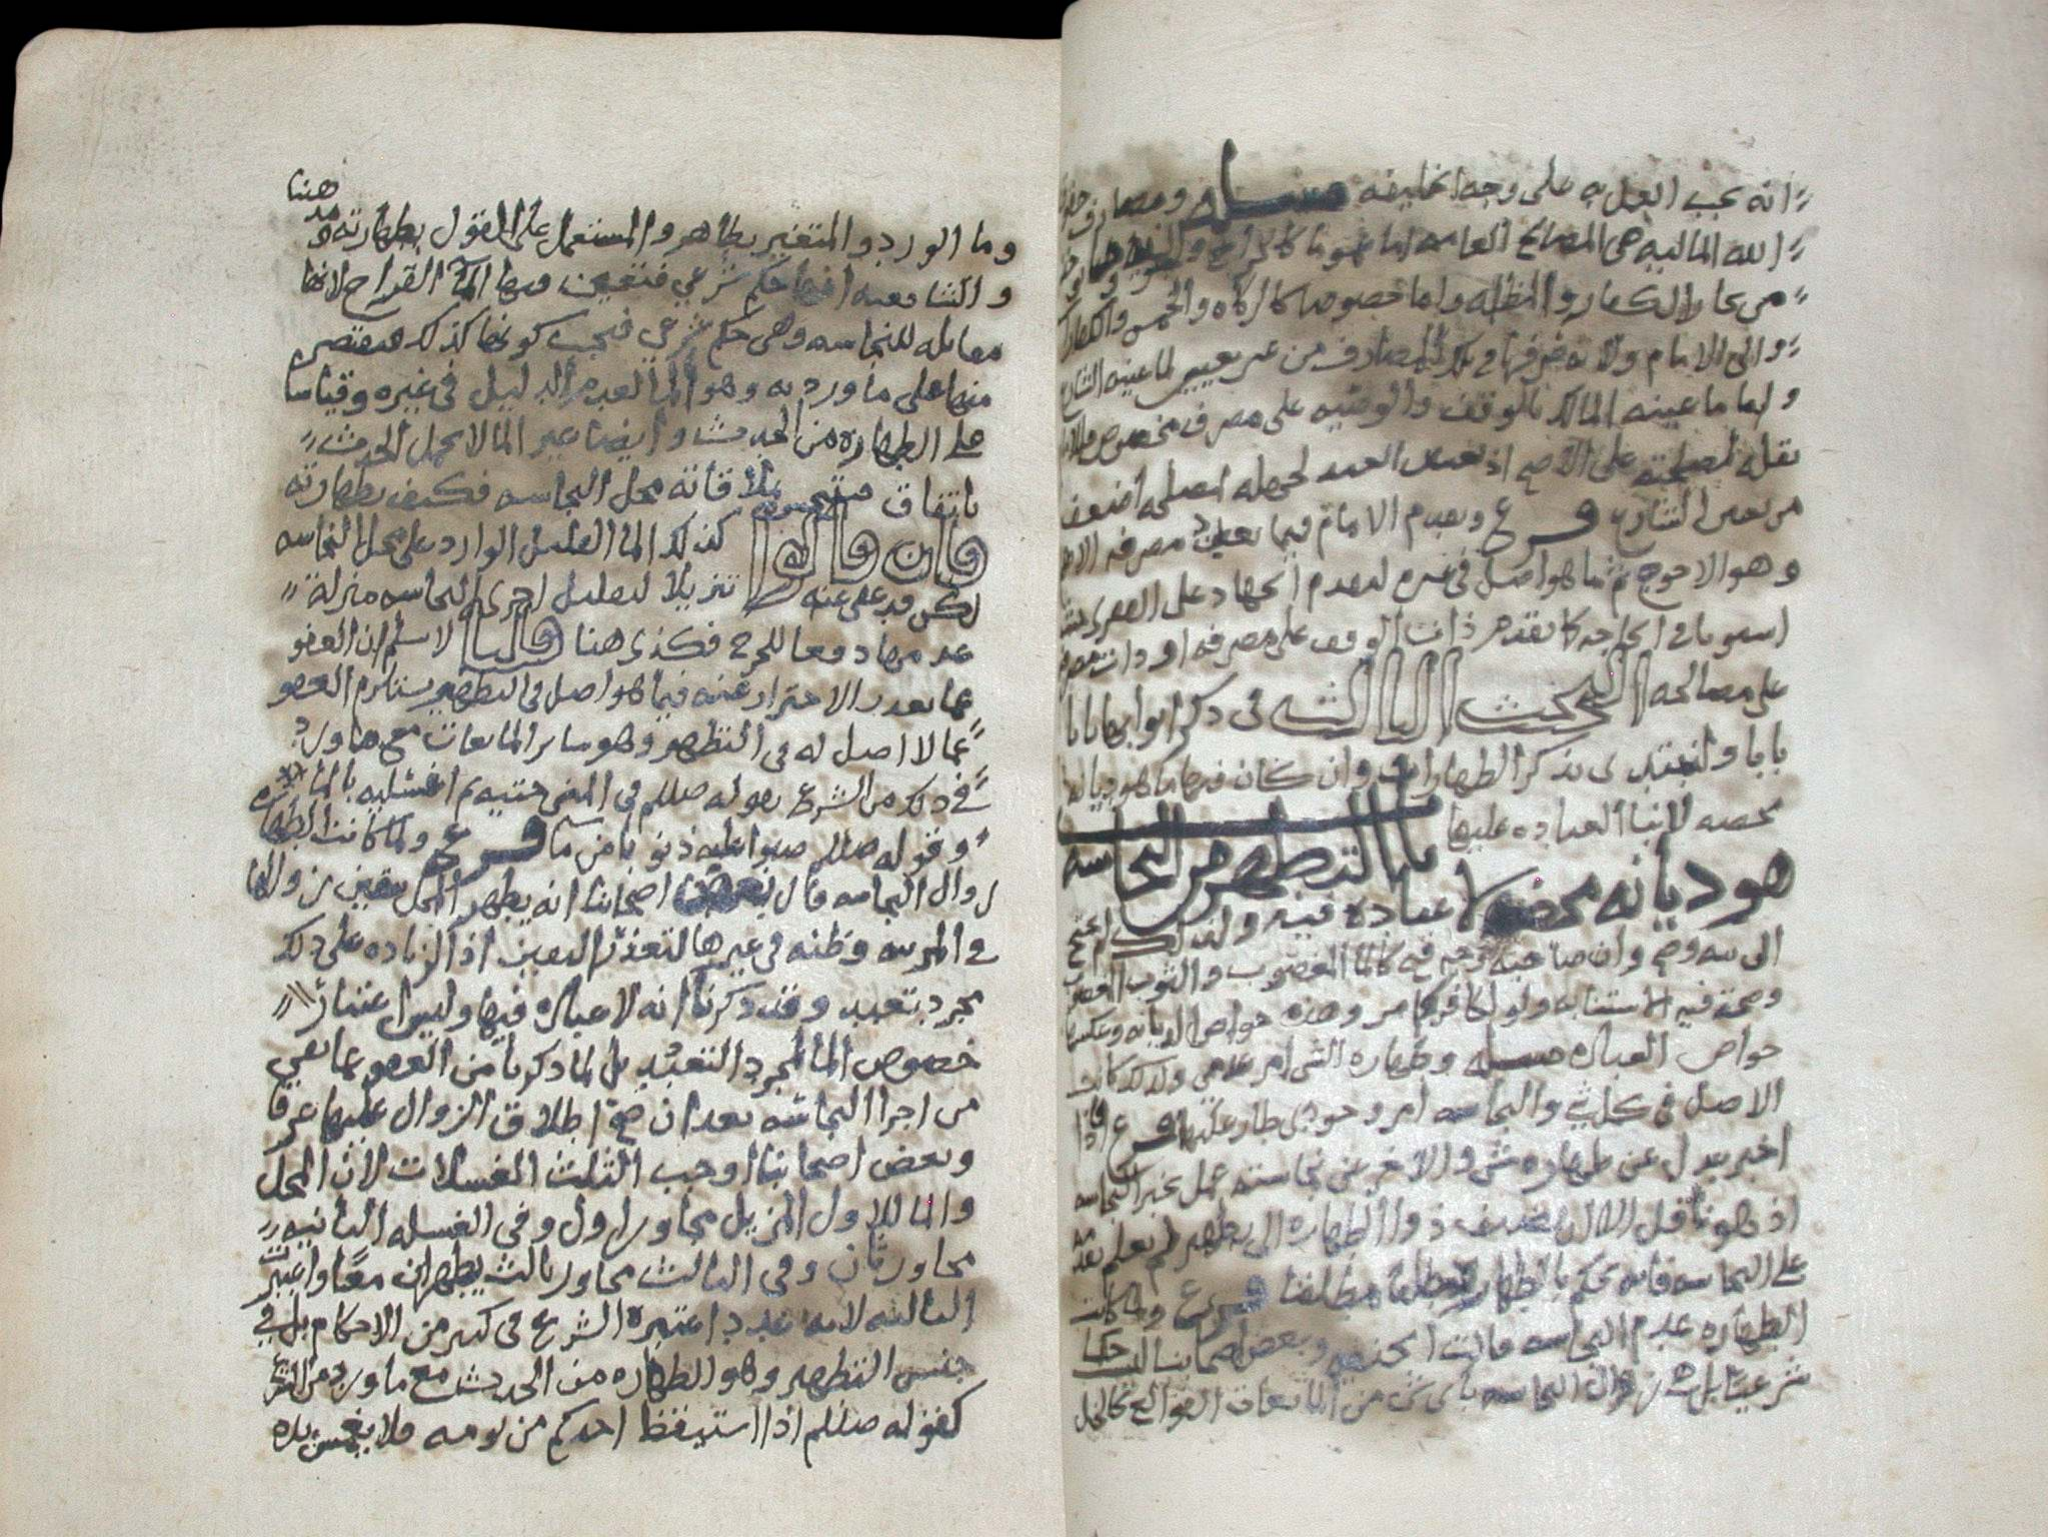 انه يجب العمل به على وجه الخليفه مسله ومصارف
الله الماليه هي المصالح العامه اما عموما كالخراج
من بحار الكفار والمظالم واما خصوصا كالزكاه والخمس
والى الامام ولاته صرفها في تلك المصارف من غير تعيين لما عينه الشارع
ولها ما عينه المالك بالوقف والوصيه على مصرف مخصوص
نقله لمصلحته على الاصح اذ تعيين العبد لجهله اضعف
من تعيين الشارع فرع ويقدم الامام فيما تعين مصرفه
وهو الاحوج ثم ما هو اصل في غيره ليقدم الجهاد على الفقرى
استويا في الحاجه كما يقدم ذات الوقف على مصرفه
على مصالحه البحث الثالث في ذكر ابوابها بابا
بابا ولنبتدى بذكر الطهارات وان كان فيها ما هو ديانه
محضه لابتنا العباده عليها باب التطهر من النجاسه
هو ديانه محضه لا عباده فيه ولذلك لم يحتج
الى نيه وصح وان صاحبه محرم فيه كالما المغصوب والثوب
وصحت فيه الاستنابه ولو لكافر كما مر وهذه خواص الديانه وعكسها
خواص العباده مسله وطهاره الشي امر عدمي ولذلك كانت
الاصل في كل شي والنجاسه امر وجودي طار عليها فرع فاذا
اخبر عدل عن طهاره شي والاخر عن نجاسته عمل بخبر النجاسه
اذ هو ناقل الا ان يضيف ذوا الطهاره الى تطهير لم يعلم تقدمه
على النجاسه فانه يحكم بالطهاره مطلقا فرع ولما كانت
الطهاره عدم النجاسه قالت الحنفيه وبعض اصحابنا ليست حكما
شرعيا بل زوال النجاسه باي شي من المايعات القوالع كالخل
وما الورد والمتغير بطاهر والمستعمل على القول بطهارته وعند هننا
والشافعيه انها حكم شرعي فتعين فيها الما القراح لانها
مقابله للنجاسه وهي حكم شرعي فيجب كونها كذلك فيقتصر
منها على ما ورد به وهو الما لعدم الدليل في غيره وقياسا
على الطهاره من الحدث وايضا غير الما لا يحمل الحدث
باتفاق متنجسه بملاقاته محل النجاسه فكيف بطهارته
فان قالوا كذلك الما القليل الوارد على محل النجاسه
لكن قد عفي عنه تنزيلا لقليل اجزى النجاسه منزله
عدمها دفعا للحرج فكذى هنا قلنا لا نسلم ان العفو
عما تعذر الاحتراز عنه فيما هو اصل في التطهير يستلزم العفو
عما لا اصل له في التطهير وهو ساير المايعات مع ما ورد
في ذلك من الشرع بقوله صللم في المني حتيه ثم اغسليه بالما
وقوله صللم صبوا عليه ذنوبا من ما فرع ولما كانت الطهاره
زوال النجاسه قال بعض اصحابنا انه يطهر المحل بيقين زوالها
في المريه وظنه في غيرها لتعذر اليقين اذ الزياده على ذلك
مجرد تعبد وقد ذكرنا انه لا عباده فيها وليس اعتبار
خصوص الما لمجرد التعبد بل لما ذكرنا من العفو عما بقي
من اجزا النجاسه بعد ان صح اطلاق الزوال عليها عرفا
وبعض اصحابنا اوجب الثلث الغسلات لان المحل
والما للاول المزيل مجاور اول وفي الغسله الثانيه
مجاور ثان وفي الثالث مجاور ثالث يطهران معا واعتبرت
الثالثه لانه عدد اعتبره الشرع في كثير من الاحكام بل في
جنس التطهير وهو الطهاره من الحدث مع ما ورد من الشرع
كقوله صللم اذا استيقظ احدكم من نومه فلا يغمس يده